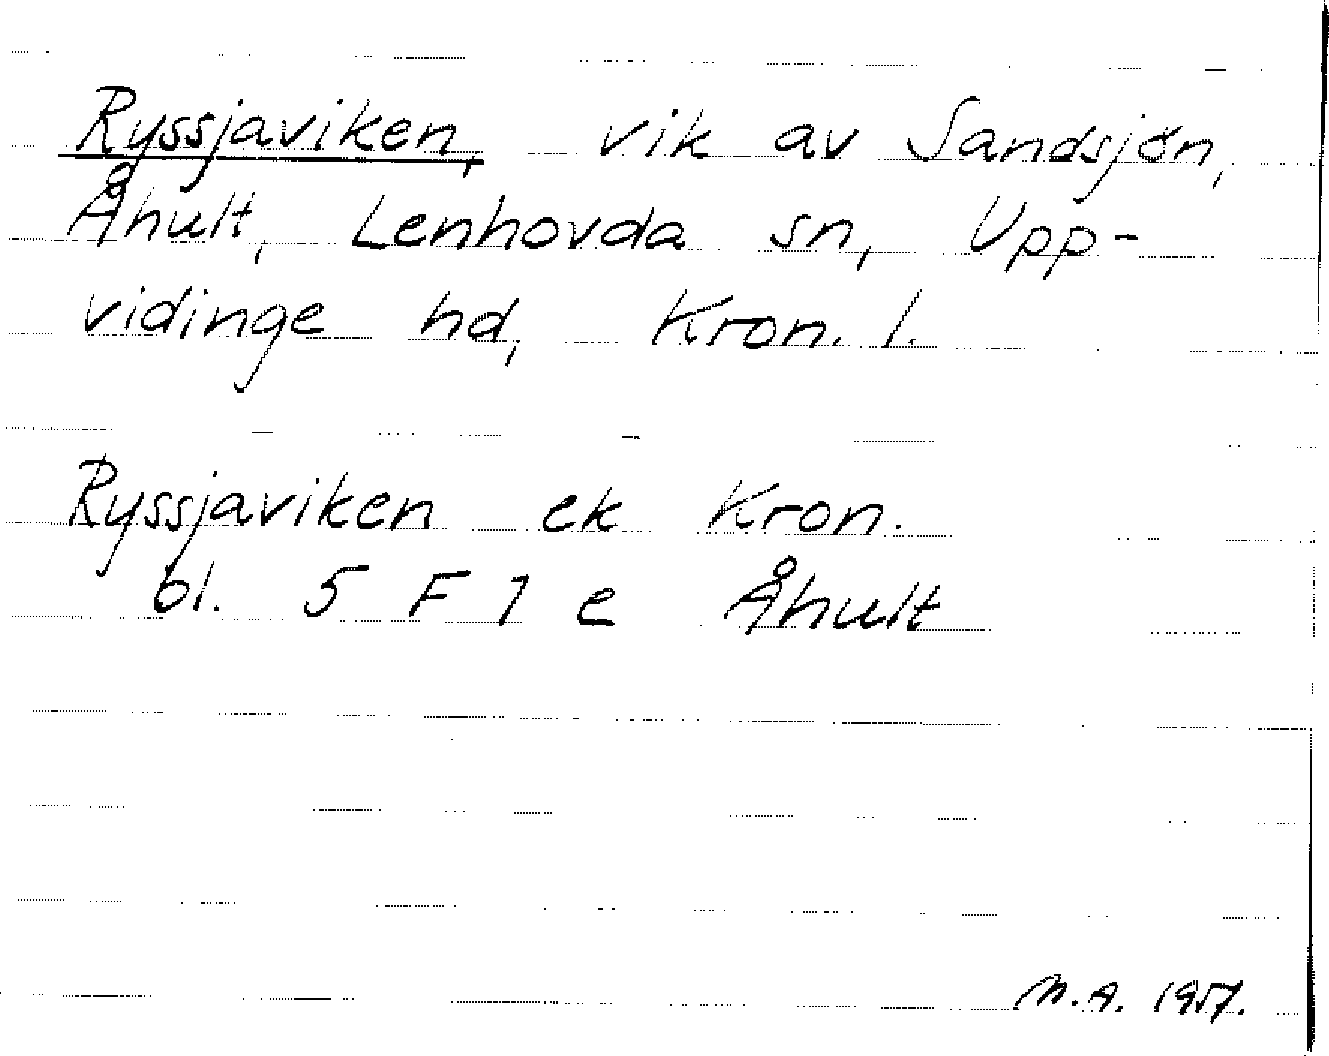 Ryssjaviken, vik av Sandsjön,
Åhult, Lenhovda sn, Upp-
vidinge hd, Kron. l.
Ryssjaviken ek Kron.
bl. 5 F 1 e Åhult
M.A. 1957.